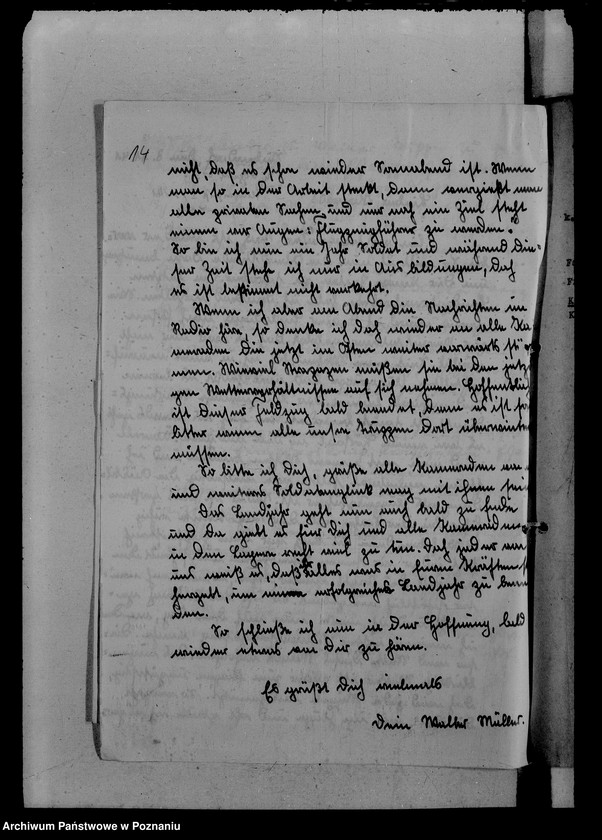 14
nicht, daß es schon wieder Sonnabend ist. Wenn
man so in der Arbeit steckt, dann vergießt man
alle privaten Sachen und nur noch ein Ziel steht
einem vor Augen: „Flugzeugführer zu werden."
So bin ich nun ein Jahr Soldat und während die-
ser Zeit stehe ich nur in Ausbildungen, doch
es ist bestimmt nicht verkehrt.
Wenn ich aber am Abend die Nachrichten im
Radio höre, so denke ich doch wieder an alle Ka
meraden die jetzt im Osten weiter vorwärts stü
men. Wieviel Strapazen müßen sie bei den jetz
gen Wetterverhältnissen auf sich nehmen. Hoffentlich
ist dieser Feldzug bald beendet, denn es ist so
bitter wenn alle unsre Truppen dort überwinte
müssen.
So bitte ich Dich, grüße alle Kameraden von
und weiteres Soldatenglück mag mit ihnen sein
Das Landjahr geht nun auch bald zu Ende
und da giebt es für Dich und alle Kameraden
in den Lagern recht viel zu tun. Doch jeder von
uns weiß es, daß Ihr alles was in Euren Kräften s
hergebt, um ein erfolgreiches Landjahr zu been
den.
So schließe ich nun in der Hoffnung, bald
wieder etwas von Dir zu hören.
Es grüßt Dich vielmals
Dein Walter Müller.
Archiwum Państwowe w Poznaniu